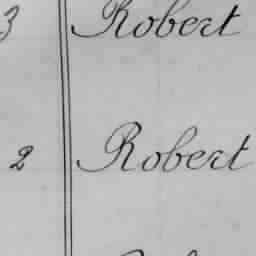 3 Robert
2 Robert